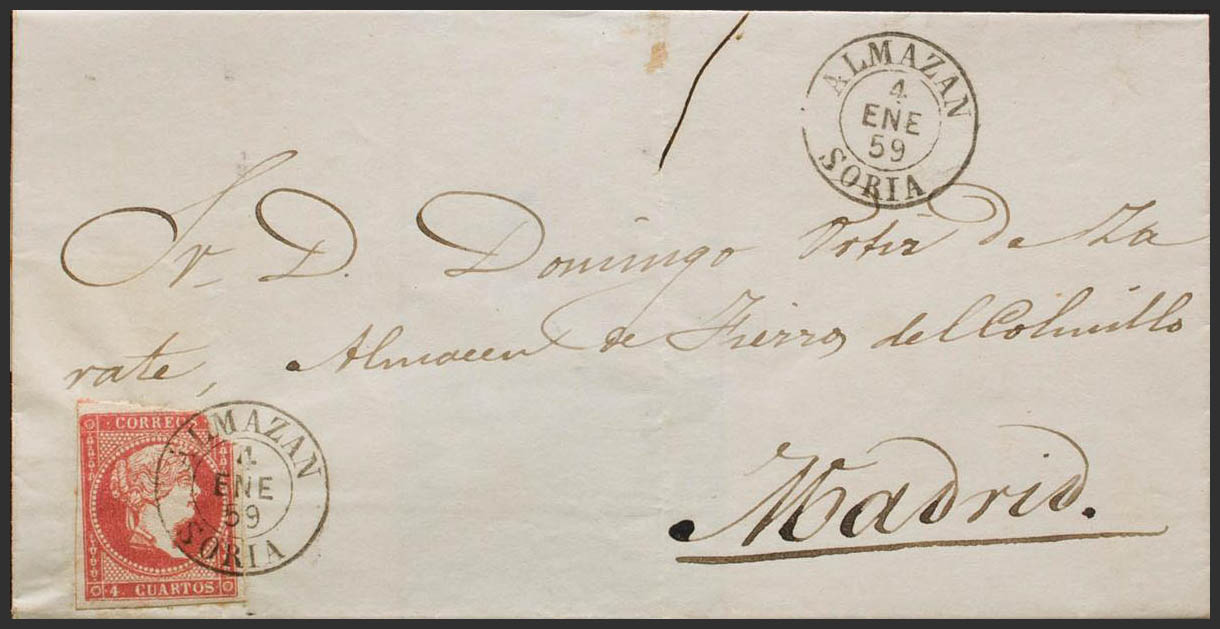 ALMAZAN
4
ENE
59
SORIA
Sr. D. Domingo Ortiz de Za
rate, Almacen de Fierro, del Colmillo
Madrid.
CORREOS
4 CUARTOS
ALMAZAN
4
ENE
59
SORIA